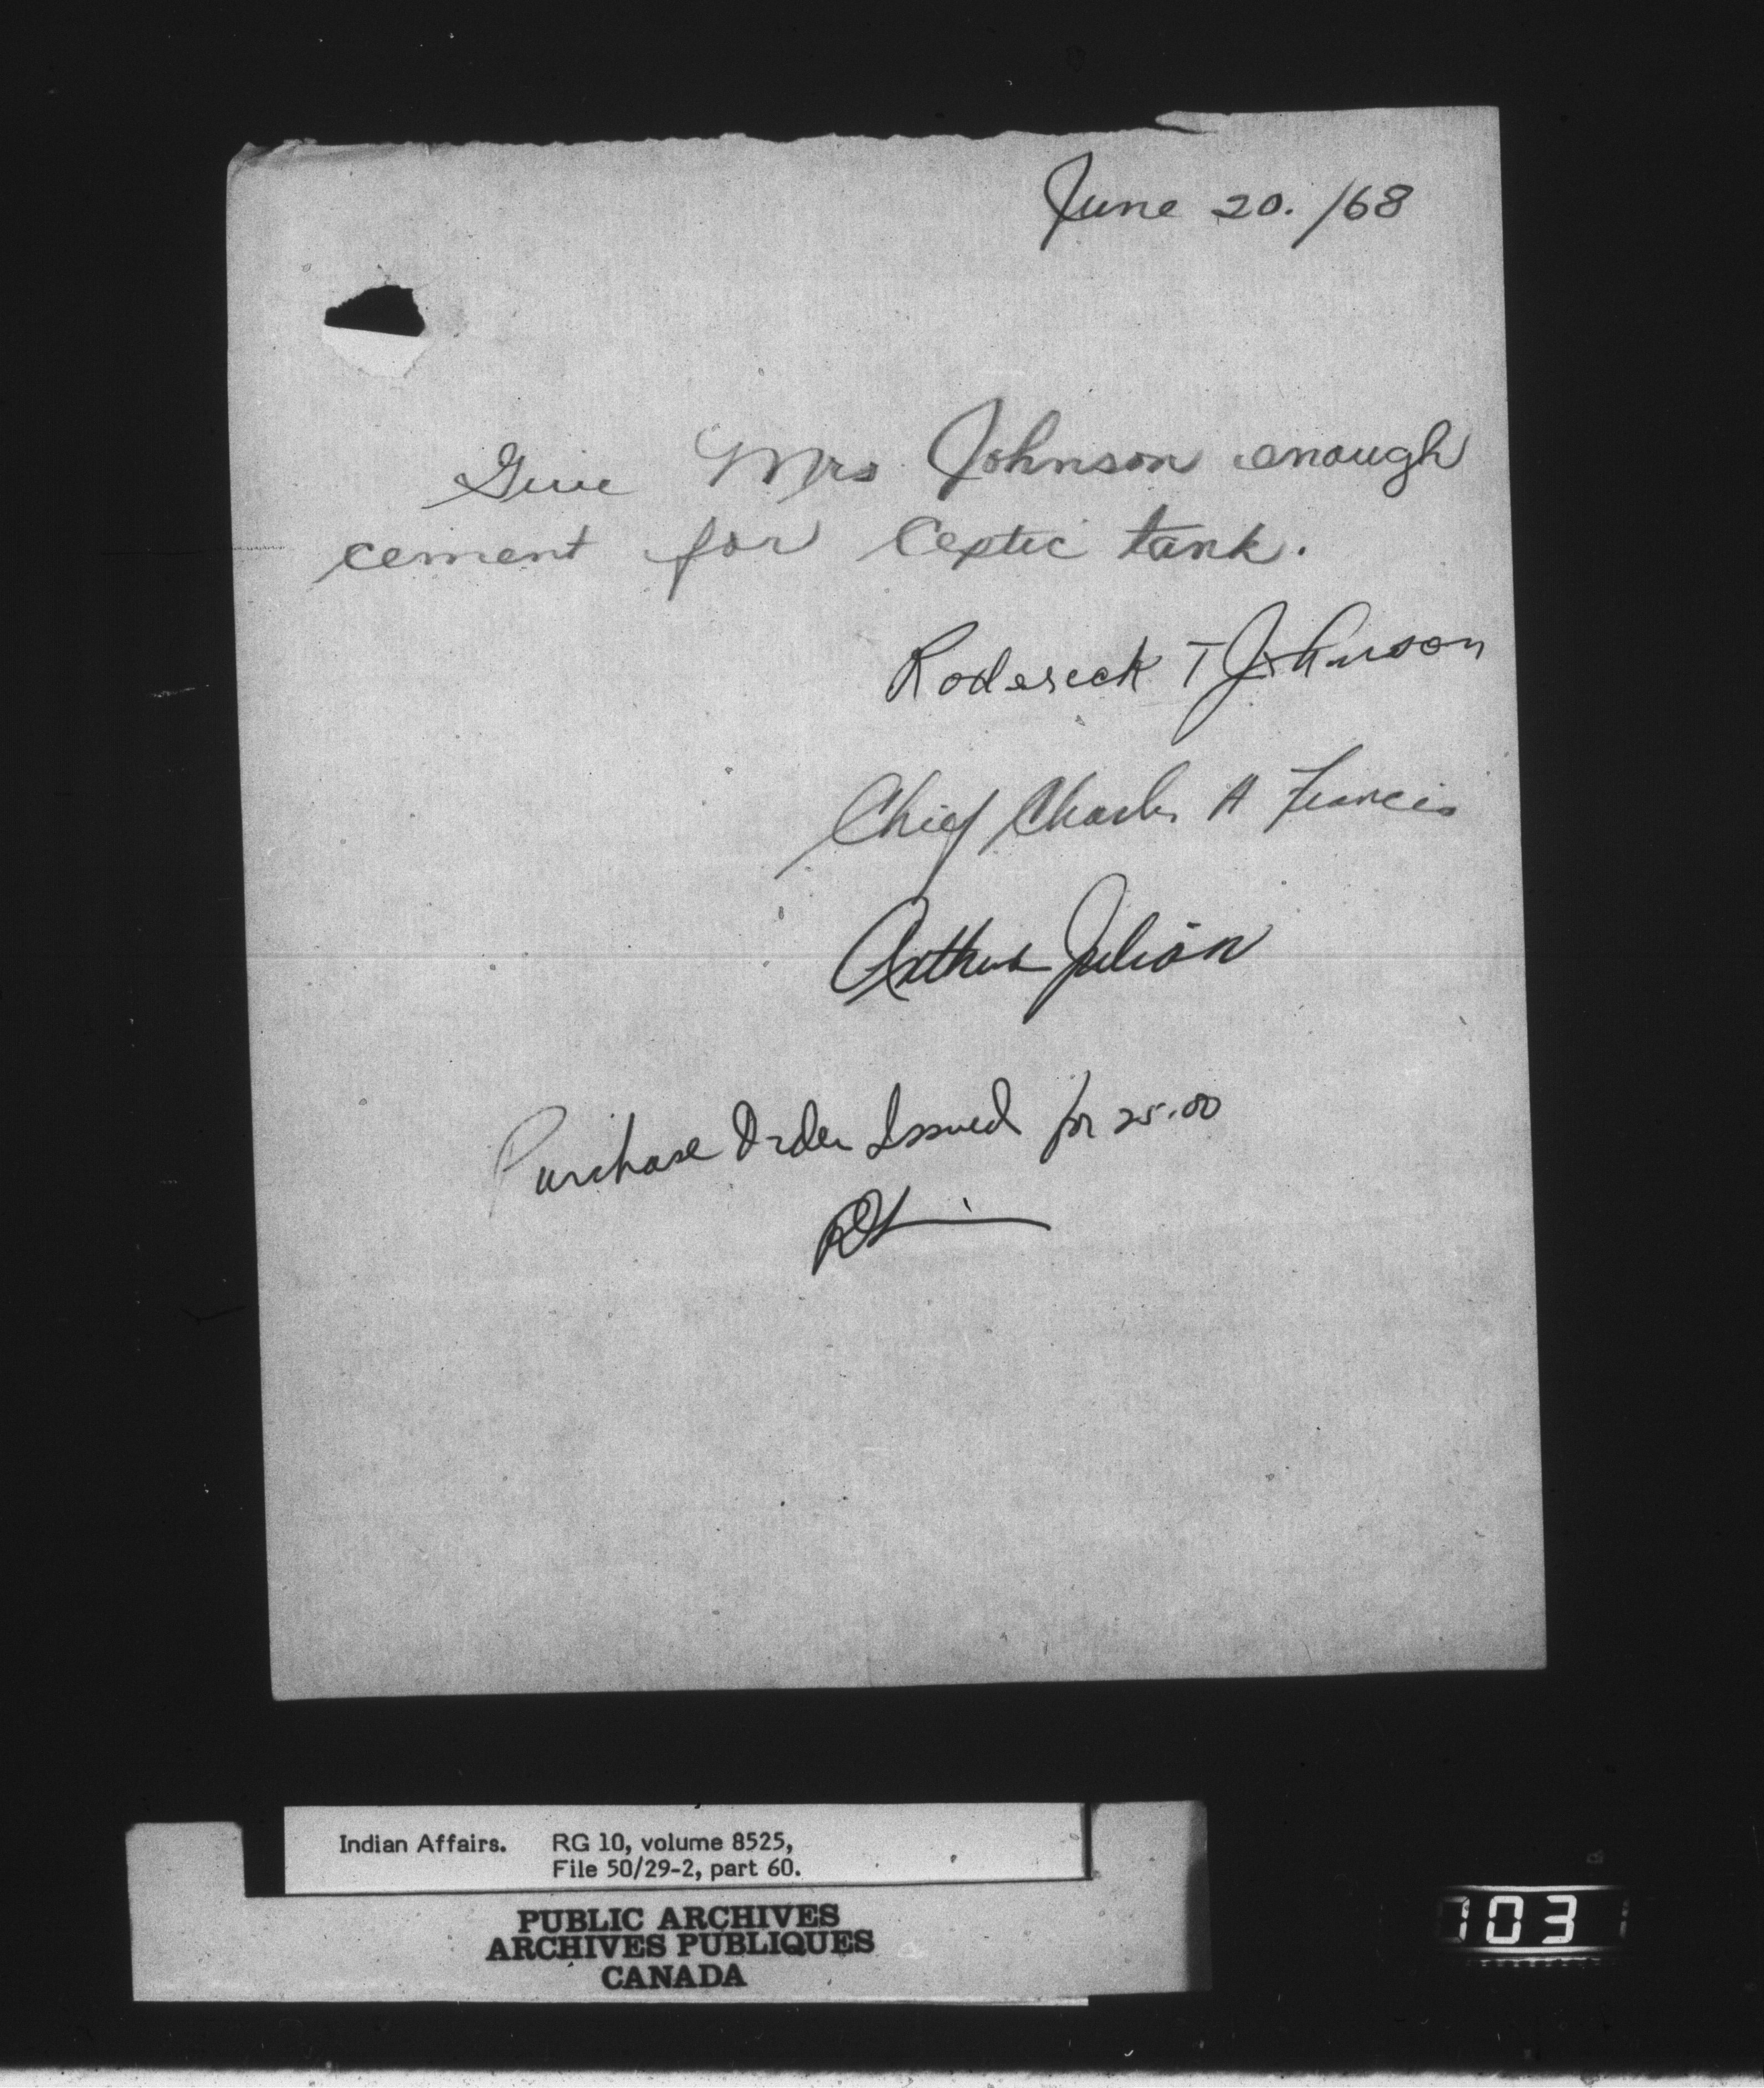 June 20. /68
Give Mrs Johnson enough
cement for Ceptic tank.
Roderick T Johnson
Chief Charles A Francis
Arthur Julian
Purchase Order Issued for 25.00
Indian Affairs. RG 10, volume 8525,
File 50/29-2, part 60.
PUBLIC ARCHIVES
ARCHIVES PUBLIQUES
CANADA
703